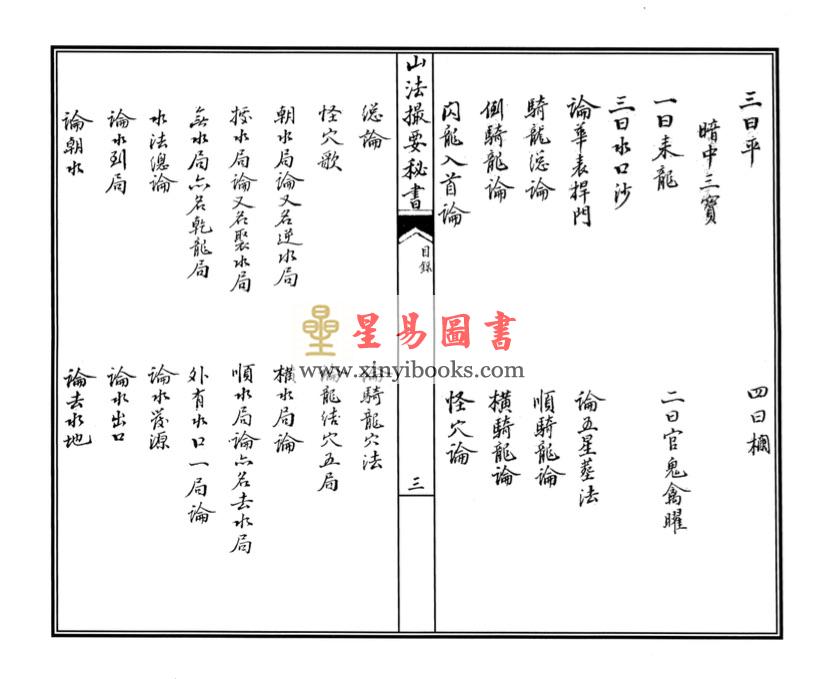 三曰平
四曰櫩
暗中三寶
一曰來龍
二曰官鬼禽曜
三曰水口沙
論華表捍門
論五星塟法
騎龍總論
順騎龍論
倒騎龍論
橫騎龍論
閃龍入首論
怪穴論
山法撮要秘書
目錄
三
總論
騎龍穴法
怪穴歌
龍結穴五局
朝水局論又名逆水局
橫水局論
據水局論又名聚水局
順水局論亦名去水局
無水局亦名乾龍局
外有水口一局論
水法總論
論水發源
論水到局
論水出口
論朝水
論去水地
星易圖書
www.xinyibooks.com